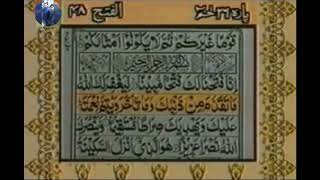 پاره ٢٦ حٰمٓ
الفتح ٤٨
قَوْمًا غَيْرَكُمْ ثُمَّ لَا يَكُوْنُوْۤا اَمْثَالَكُمْ
بِسْمِ اللهِ الرَّحْمٰنِ الرَّحِيْمِ
اِنَّا فَتَحْنَا لَكَ فَتْحًا مُّبِيْنًا لِّيَغْفِرَ لَكَ اللهُ
مَا تَقَدَّمَ مِنْ ذَنْۢبِكَ وَمَا تَاَخَّرَ وَيُتِمَّ نِعْمَتَهٗ
عَلَيْكَ وَيَهْدِيَكَ صِرَاطًا مُّسْتَقِيْمًا وَّيَنْصُرَكَ
اللهُ نَصْرًا عَزِيْزًا هُوَ الَّذِيْۤ اَنْزَلَ السَّكِيْنَةَ